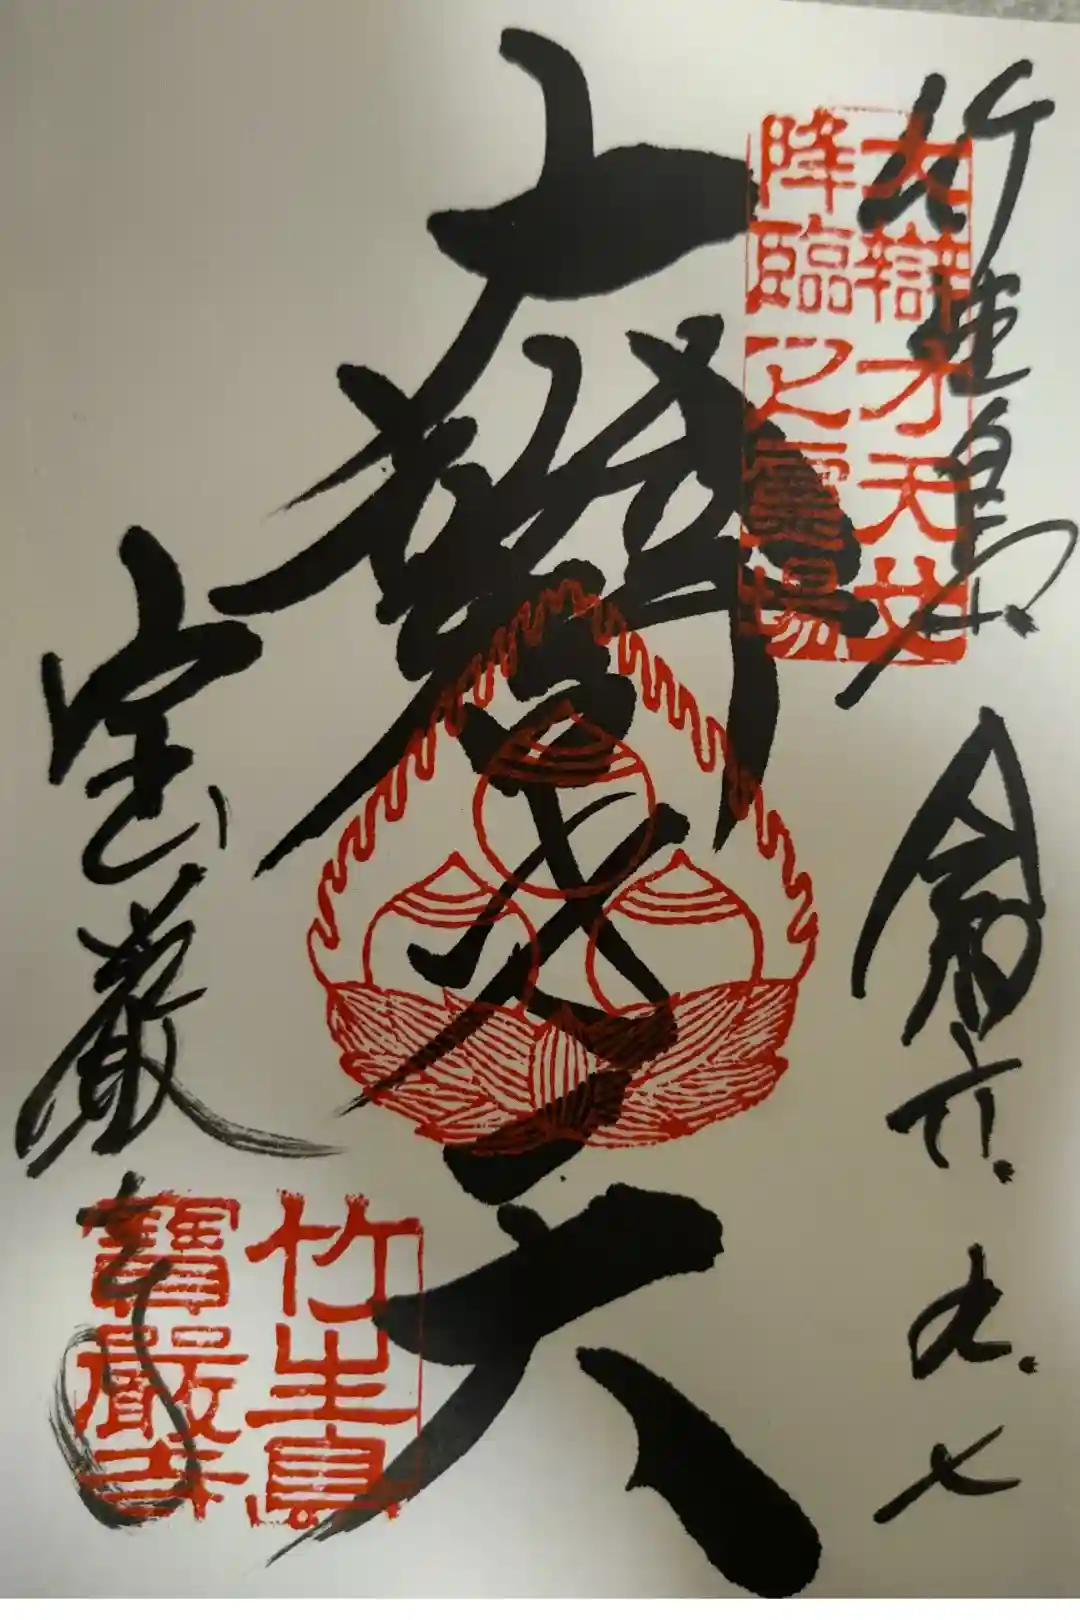 竹生島
令和六.九.七
大辯才天女
降臨之霊場
大辯才天
宝厳寺
竹生島
寶嚴寺